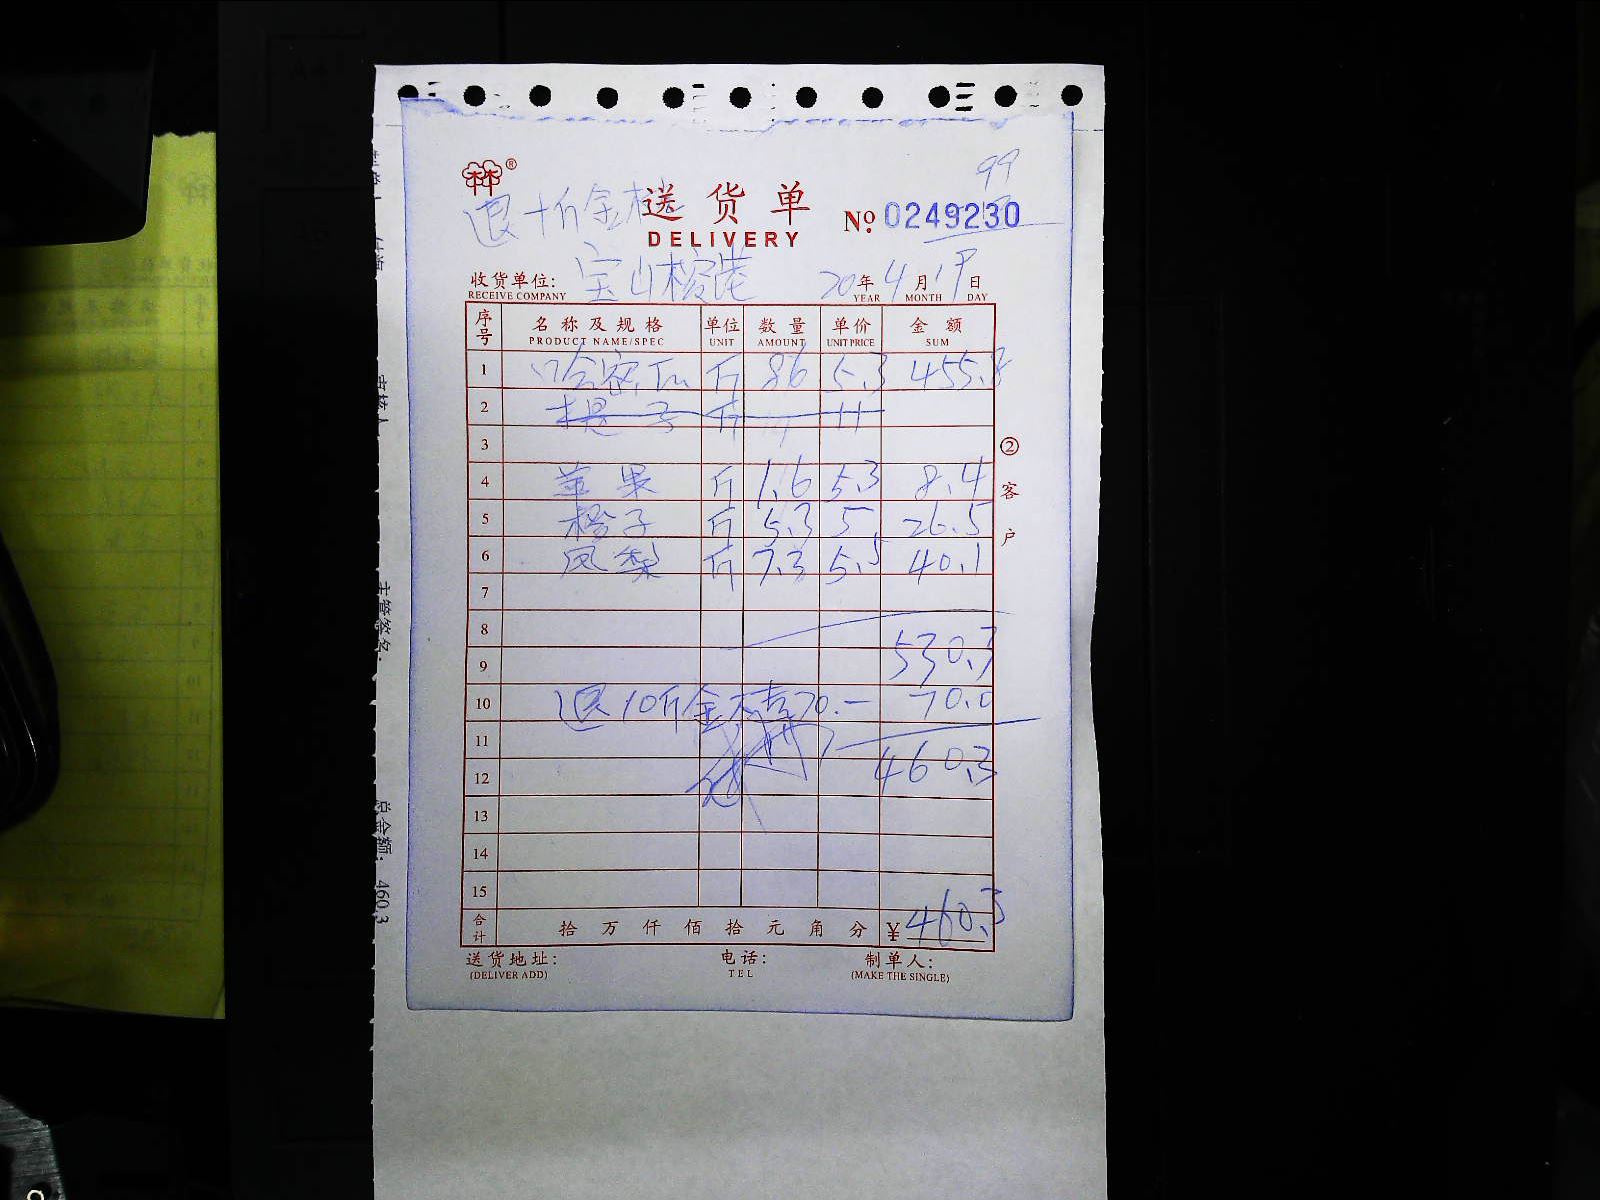 99
退十斤金桔
送货单
DELIVERY
№ 0249230
收货单位: 宝山榕港 20年4月19日
RECEIVE COMPANY YEAR MONTH DAY
序号 名称及规格 单位 数量 单价 金额
PRODUCT NAME/SPEC UNIT AMOUNT UNIT PRICE SUM
1 哈密瓜 斤 86 5.3 455.8
2 提子 斤 11
3
4 苹果 斤 1.6 5.3 8.4
5 橙子 斤 5.3 5 26.5
6 凤梨 斤 7.3 5.5 40.1
7
8
9 530.3
10 退10斤金桔 70.- 70.0
11
12 460.3
13
14
15
合计 拾 万 仟 佰 拾 元 角 分 ¥ 460.3
送货地址: 电话: 制单人:
(DELIVER ADD) TEL (MAKE THE SINGLE)
②客户
主管签名:
总金额: 460.3